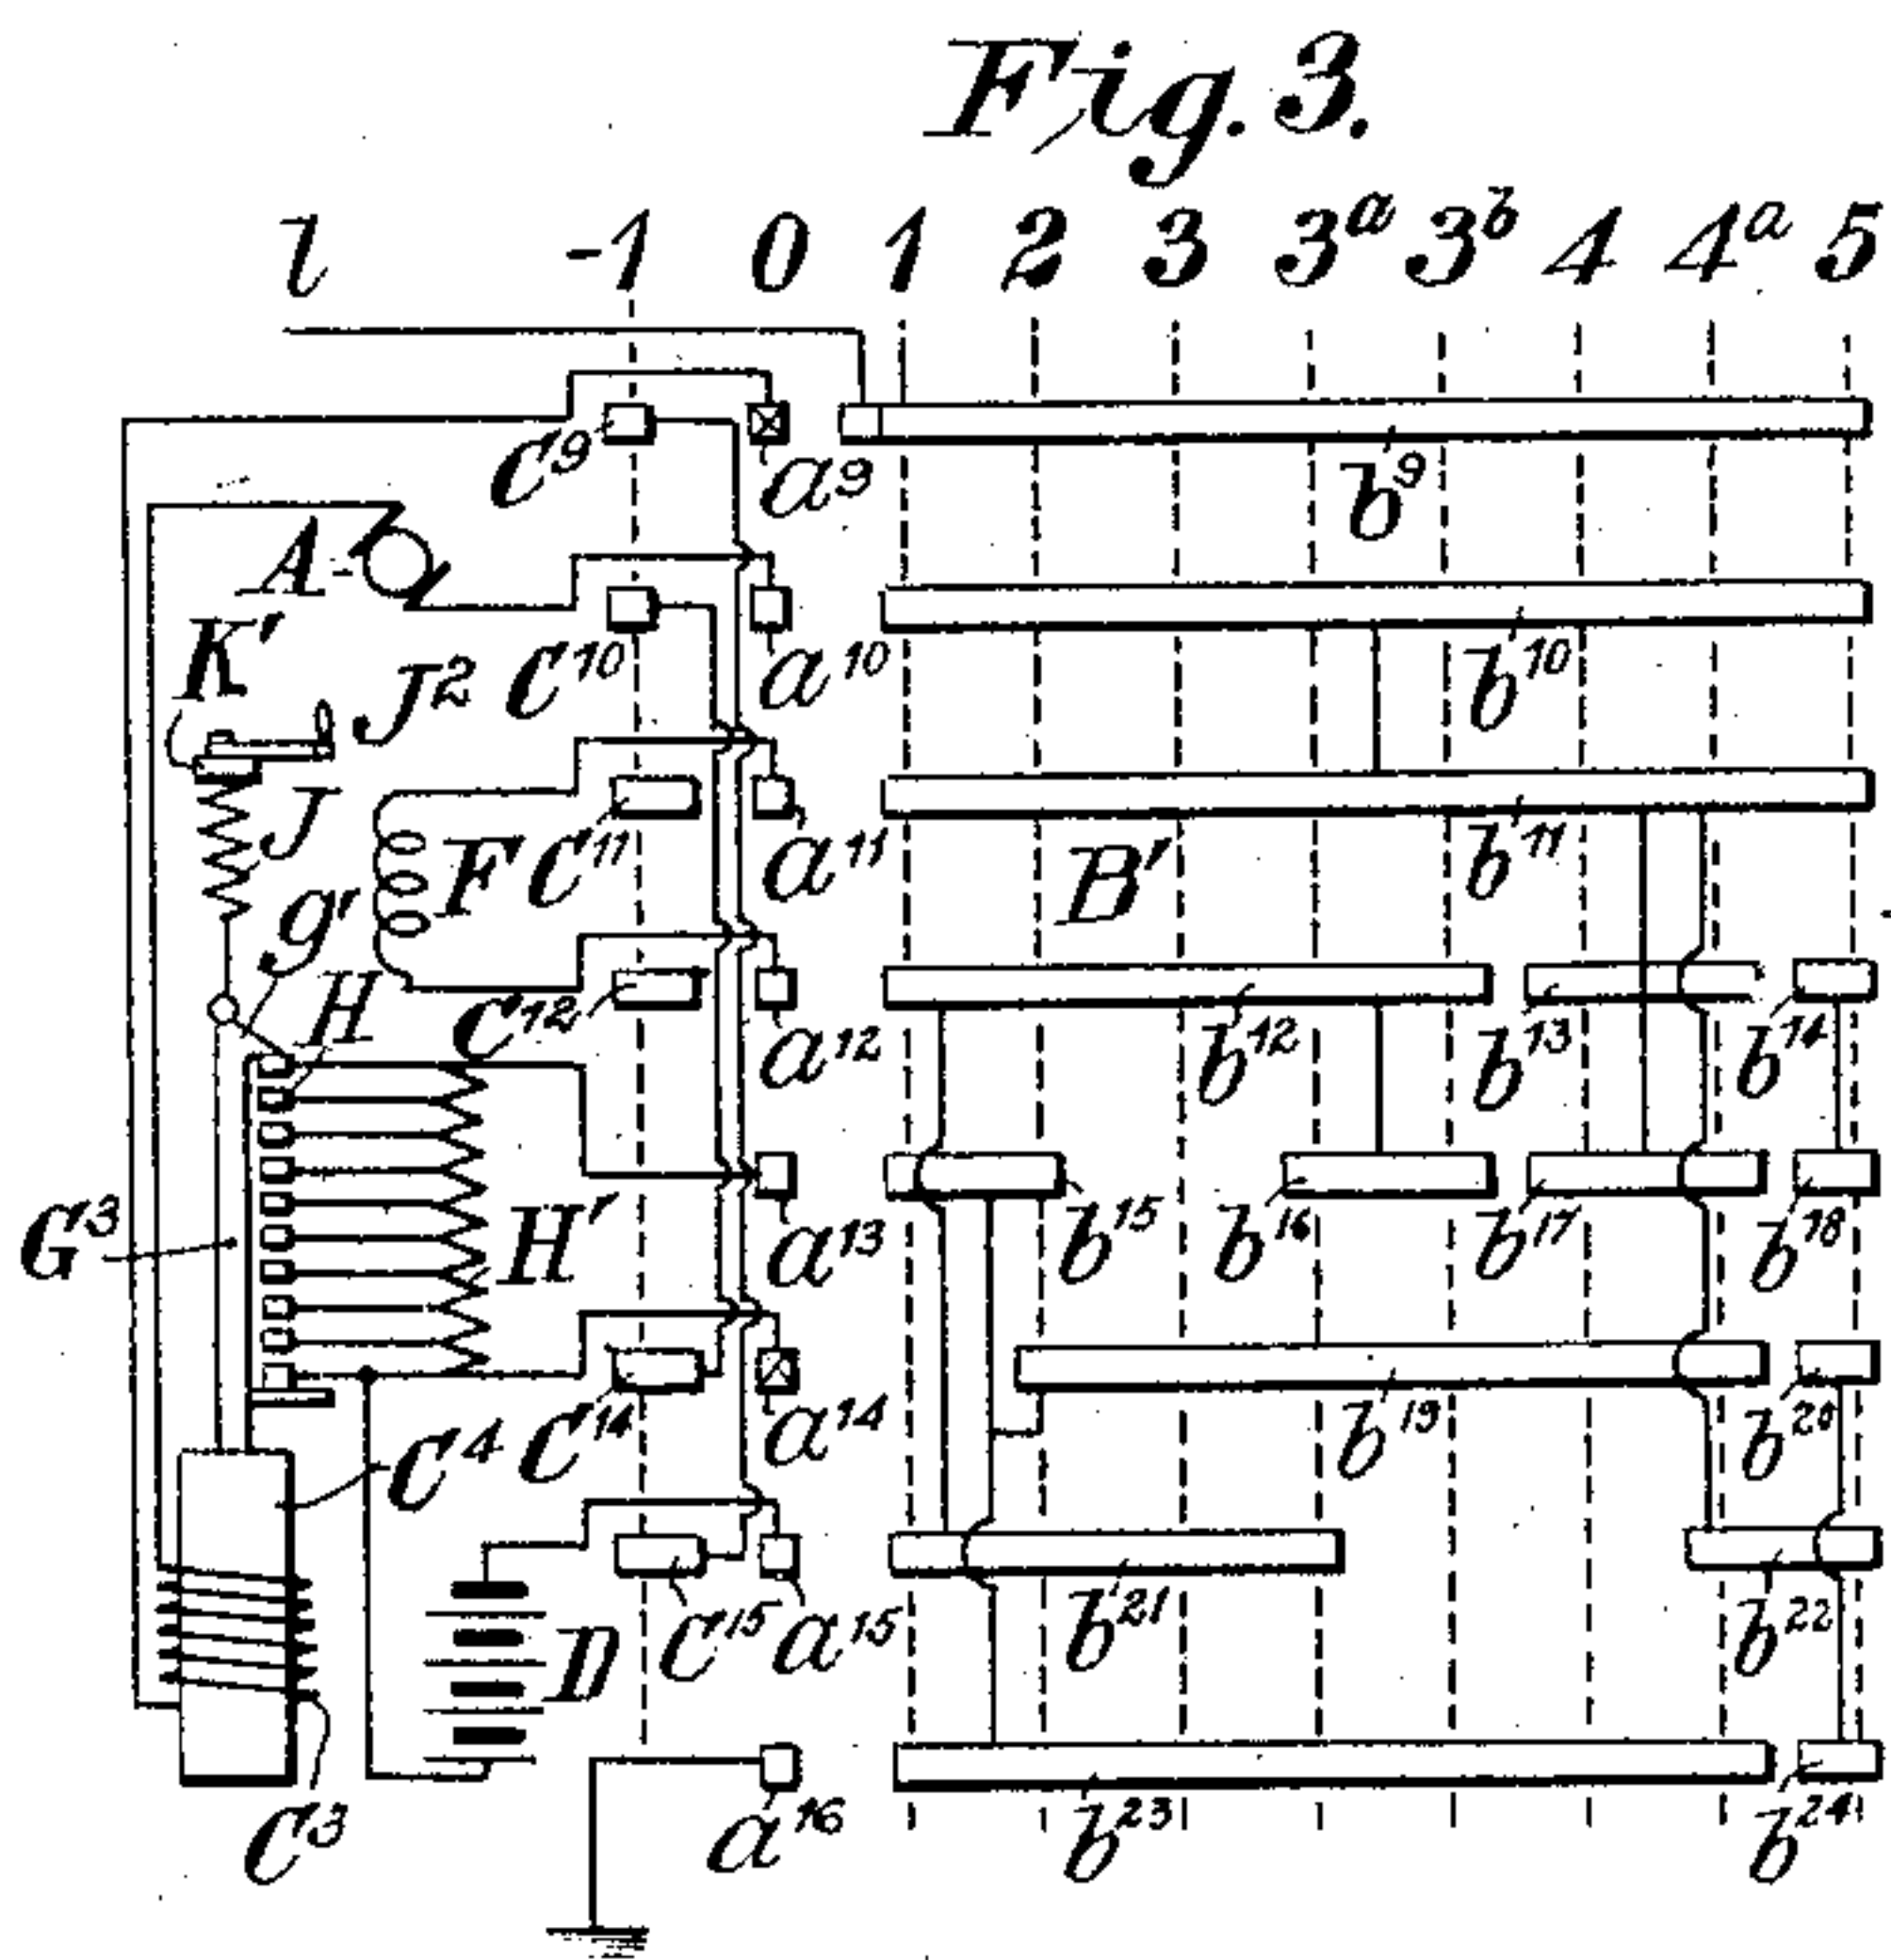 Fig. 3.
l -1 0 1 2 3 3ᵃ 3ᵇ 4 4ᵃ 5
C⁹ a⁹ b⁹
A
K' J² C¹⁰ a¹⁰ b¹⁰
J F C¹¹ a¹¹ B' b¹¹
g' H C¹² a¹² b¹² b¹³ b¹⁴
G³ H' a¹³ b¹⁵ b¹⁶ b¹⁷ b¹⁸
C⁴ C¹⁴ a¹⁴ b¹⁹ b²⁰
D C¹⁵ a¹⁵ b²¹ b²²
C³ a¹⁶ b²³ b²⁴